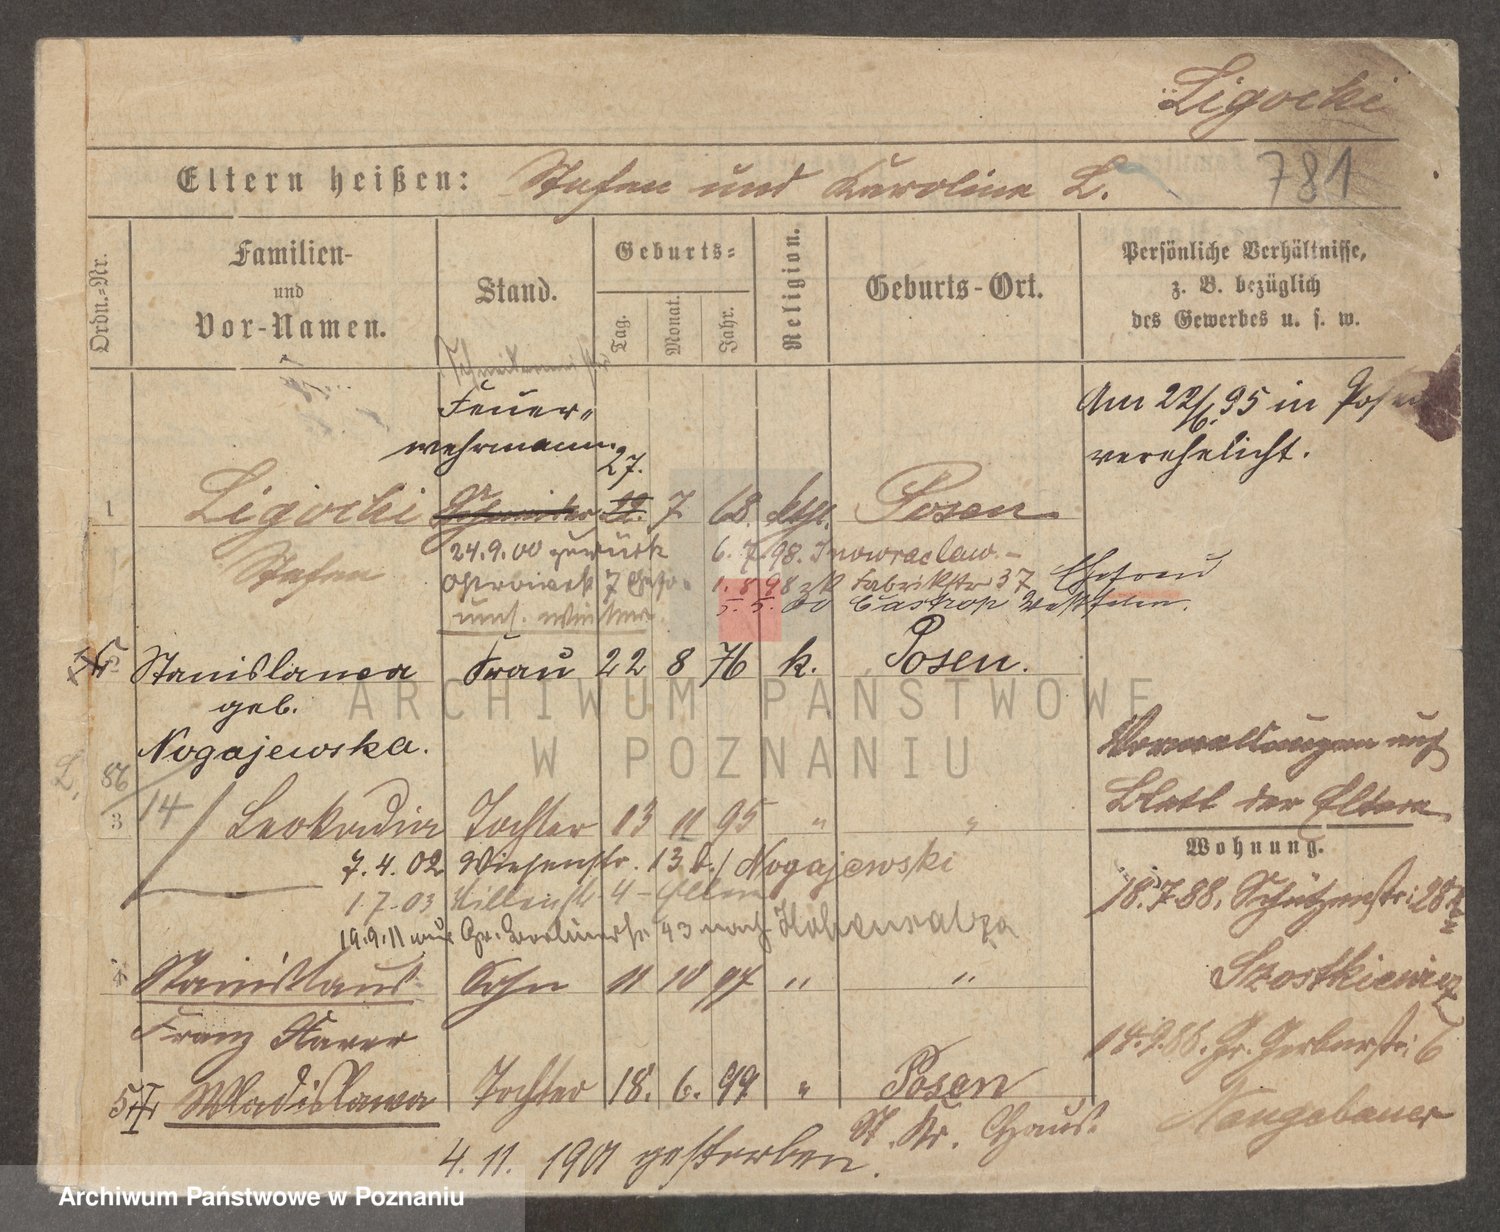 Ligocki
781
Eltern heißen: Stefan und Karoline L.
Ordn.-Nr.
Familien-
und
Vor-Namen.
Stand.
Geburts-
Tag.
Monat.
Jahr.
Religion.
Geburts-Ort.
Persönliche Verhältnisse,
z. B. bezüglich
des Gewerbes u. s. w.
Feuer-
wehrmann
Am 22/6. 95 in Posen
verehelicht.
27.
1 Ligocki 7 68. kath. Posen
Stefan
24.9.00 zurück 6. 7. 98. Inowraclaw.
1. 8. 98 Fabrikstr 37 Ehefrau
5. 5. 00 Castrop Westfalen.
Stanislawa Frau 22 8 76 k. Posen.
geb.
Nogajewska.
L. 86/14
3 Leokadia Tochter 13 11 95 " "
7.4.02 Wiesenstr. 13 b./Nogajewski
1 7 03 4 - Eltern
19.9.11 aus Gr. Berlinerstr. 93 nach Hohensalza
4 Stanislaus Sohn 11 10 97 " "
Franz Xaver
5 Wladislawa Tochter 18. 6. 99 " Posen
4. 11. 1901 gestorben. St. Kr. Haus.
Verwaltungen auf
Blatt der Eltern
Wohnung.
18.7.88. Schützenstr: 28
Szostkiewicz
14.9.88. Gr. Gerberstr: 6
Neugebauer
ARCHIWUM PAŃSTWOWE
W POZNANIU
Archiwum Państwowe w Poznaniu